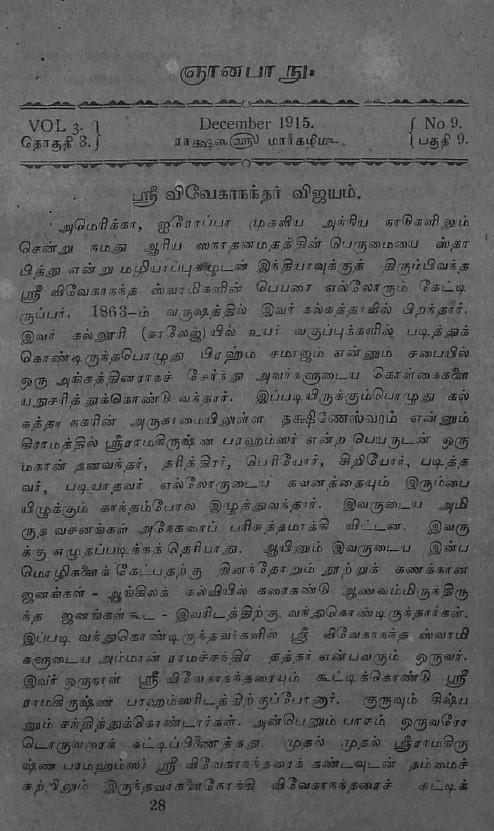 ஞானபாநு.
VOL 3. December 1915. No 9.
தொகுதி 3. ராக்ஷஸஹு மார்கழிமீ. பகுதி 9.
ஸ்ரீ விவேகாநந்தர் விஜயம்.
அமெரிக்கா, ஐரோப்பா முதலிய அந்நிய நாடுகளிலும்
சென்று நமது ஆரிய ஸநாதனமதத்தின் பெருமையை ஸ்தா
பித்து என்று மழியாப்புகழுடன் இந்தியாவுக்குத் திரும்பிவந்த
ஸ்ரீ விவேகாநந்த ஸ்வாமிகளின் பெயரை எல்லோரும் கேட்டி
ருப்பர். 1863-ம் வருஷத்தில் இவர் கல்கத்தாவில் பிறந்தார்.
இவர் கல்லூரி (காலேஜ்) யில் உயர் வகுப்புக்களில் படித்துக்
கொண்டிருந்தபொழுது பிரஹ்ம சமாஜம் என்னும் சபையில்
ஒரு அங்கத்தினராகச் சேர்ந்து அவர்களுடைய கொள்கைகளை
யநுசரித்துக்கொண்டு வந்தார். இப்படியிருக்கும்பொழுது கல்
கத்தா நகரின் அருகாமையிலுள்ள தக்ஷிணேஸ்வரம் என்னும்
கிராமத்தில் ஸ்ரீராமகிருஷ்ண பரஹம்ஸர் என்ற பெயருடன் ஒரு
மகான் தனவந்தர், தரித்திரர், பெரியோர், சிறியோர், படித்த
வர், படியாதவர் எல்லோருடைய கவனத்தையும் இரும்பை
யிழுக்கும் காந்தம்போல இழுத்துவந்தார். இவருடைய அமி
ருத வசனங்கள் அநேகரைப் பரிசுத்தமாக்கி விட்டன. இவரு
க்கு எழுதப்படிக்கத் தெரியாது. ஆயினும் இவருடைய இன்ப
மொழிகளைக் கேட்பதற்கு தினந்தோறும் நூற்றுக் கணக்கான
ஜனங்கள் - ஆங்கிலக் கல்வியில் கரைகண்டு ஆணவம்மிருந்திரு
ந்த ஜனங்கள்கூட - இவரிடத்திற்கு வந்துகொண்டிருந்தார்கள்.
இப்படி வந்துகொண்டிருந்தவர்களில் ஸ்ரீ விவேகாநந்த ஸ்வாமி
களுடைய அம்மான் ராமச்சந்திர தத்தர் என்பவரும் ஒருவர்.
இவர் ஒருநாள் ஸ்ரீ விவேகாநந்தரையும் கூட்டிக்கொண்டு ஸ்ரீ
ராமகிருஷ்ண பரஹம்ஸரிடத்திற்குப்போனார். குருவும் சிஷ்ய
னும் சந்தித்துக்கொண்டார்கள். அன்பெனும் பாசம் ஒருவரோ
டொருவரைக் கட்டிப்பிணைத்தது. முதல் முதல் ஸ்ரீராமகிரு
ஷ்ண பரமஹம்ஸர் ஸ்ரீ விவேகாநந்தரைக் கண்டவுடன் தம்மைச்
சுற்றிலும் இருந்தவர்களைநோக்கி விவேகாநந்தரைச் சுட்டிக்
28